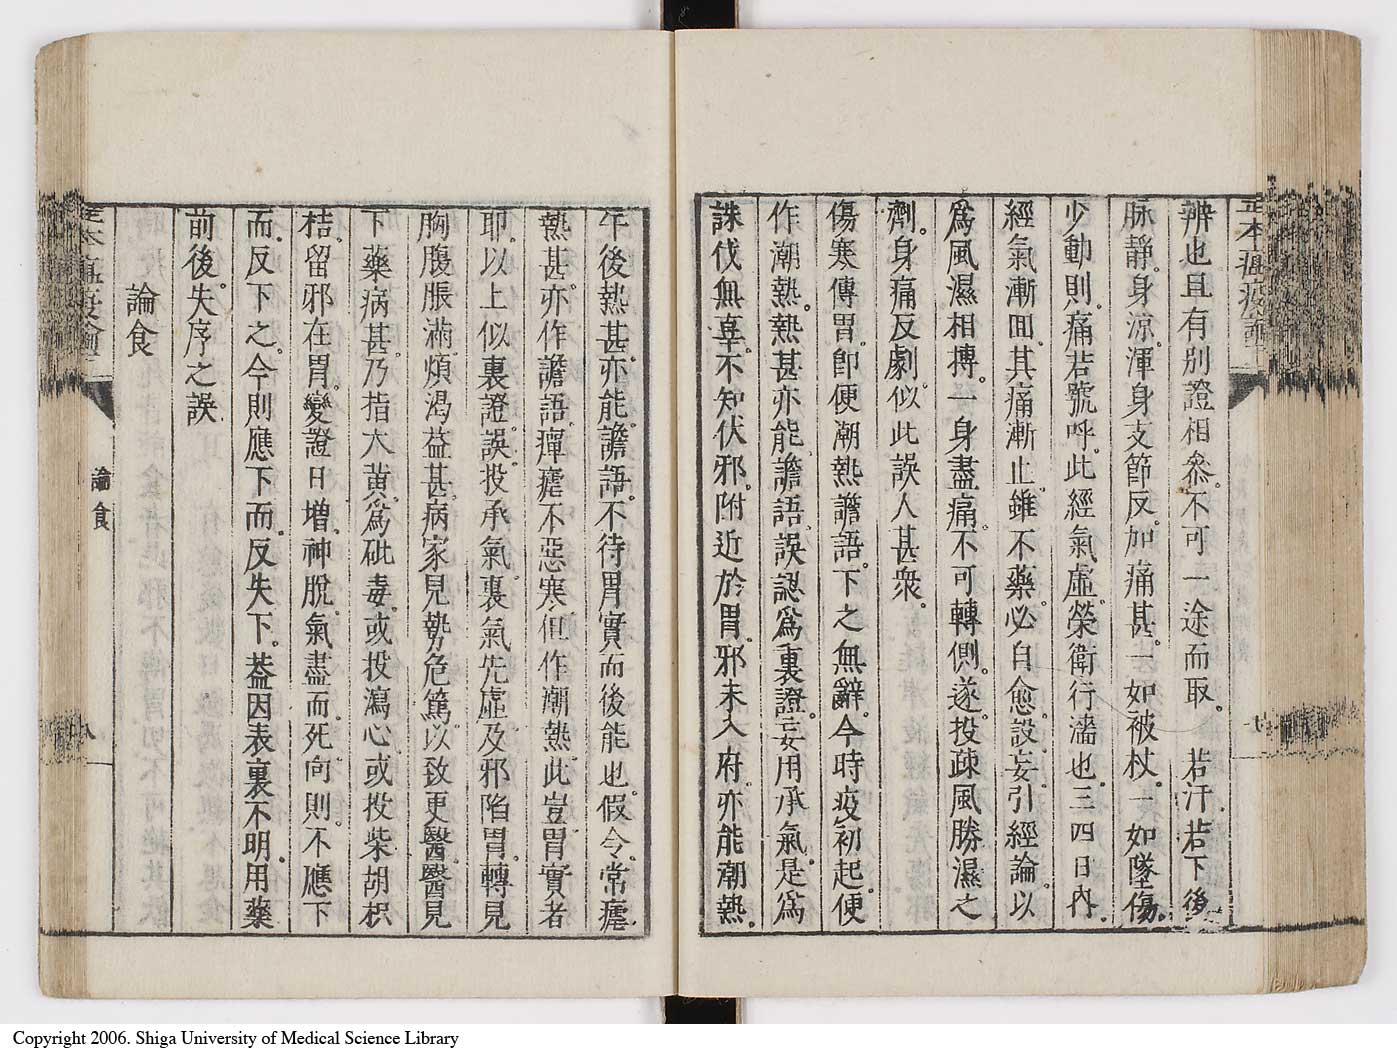 辨也且有別證相參。不可一途而取。若汗。若下後。
脉靜。身涼。渾身支節反。加痛甚。一如被杖。一如墜傷。
少動則。痛若號呼。此經氣虛。榮衛行濇也。三四日內。
經氣漸回。其痛漸止。雖不藥。必自愈。設妄。引經論。以
爲風濕相搏。一身盡痛。不可轉側。遂。投疎風勝濕之
劑。身痛反劇。似此誤人甚衆。
傷寒傳胃。卽便潮熱譫語。下之無辭。今時疫初起。便
作潮熱。熱甚亦能譫語。誤認爲裏證。妄用承氣。是爲
誅伐無辜。不知伏邪。附近於胃。邪未入府。亦能潮熱。
午後熱甚。亦能譫語。不待胃實而後能也。假令。常瘧
熱甚。亦作譫語。癉瘧不惡寒。但作潮熱。此豈胃實者
耶。以上似裏證。誤投承氣。裏氣先虛。及邪陷胃。轉見
胸腹脹滿。煩渴益甚。病家見勢危篤。以致更醫。醫見
下藥病甚。乃指大黃。爲砒毒。或投瀉心。或投柴胡枳
桔。留邪在胃。變證日增。神脫。氣盡而。死。向則。不應下
而。反下之。今則應下而。反失下。葢因表裏不明。用藥
前後。失序之誤
論食
論食
八